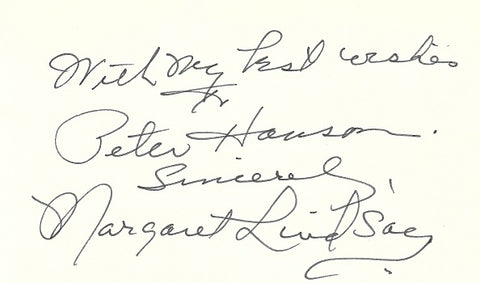 With my best wishes
to
Peter Hanson.
Sincerely,
Margaret Lindsay